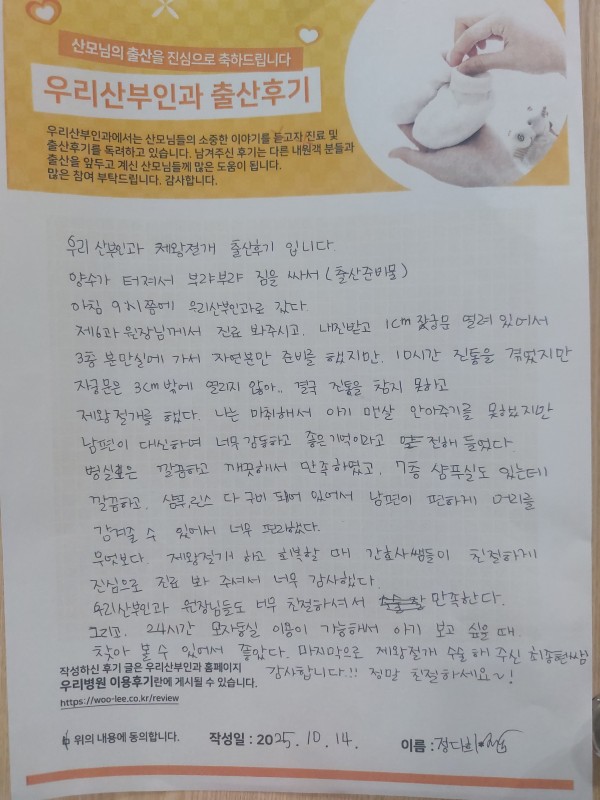 산모님의 출산을 진심으로 축하드립니다
우리산부인과 출산후기
우리산부인과에서는 산모님들의 소중한 이야기를 듣고자 진료 및
출산후기를 독려하고 있습니다. 남겨주신 후기는 다른 내원객 분들과
출산을 앞두고 계신 산모님들께 많은 도움이 됩니다.
많은 참여 부탁드립니다. 감사합니다.
우리 산부인과 제왕절개 출산후기 입니다.
양수가 터져서 부랴부랴 짐을 싸서 (출산준비물)
아침 9시쯤에 우리산부인과로 갔다.
제6과 원장님께서 진료 봐주시고, 내진받고 1cm 자궁문 열려 있어서
3층 분만실에 가서 자연분만 준비를 했지만, 10시간 진통을 겪었지만
자궁문은 3cm 밖에 열리지 않아.. 결국 진통을 참지 못하고
제왕절개를 했다. 나는 마취해서 아기 맨살 안아주기를 못했지만
남편이 대신하며 너무 감동하고 좋은기억이라고 전해 들었다.
병실은 깔끔하고 깨끗해서 만족하였고, 7층 샴푸실도 있는데
깔끔하고, 샴푸,린스 다 구비 되어 있어서 남편이 편하게 머리를
감겨줄 수 있어서 너무 편리했다.
무엇보다. 제왕절개 하고 회복할 때 간호사쌤들이 친절하게
진심으로 진료 봐 주셔서 너무 감사했다.
우리산부인과 원장님들도 너무 친절하셔서 만족한다.
그리고, 24시간 모자동실 이용이 가능해서 아기 보고 싶을 때
찾아 볼 수 있어서 좋았다. 마지막으로 제왕절개 수술 해 주신 최종현쌤
감사합니다.!! 정말 친절하세요~!
작성하신 후기 글은 우리산부인과 홈페이지
우리병원 이용후기란에 게시될 수 있습니다.
https://woo-lee.co.kr/review
위의 내용에 동의합니다. 작성일 : 2025. 10. 14. 이름 : 정다희